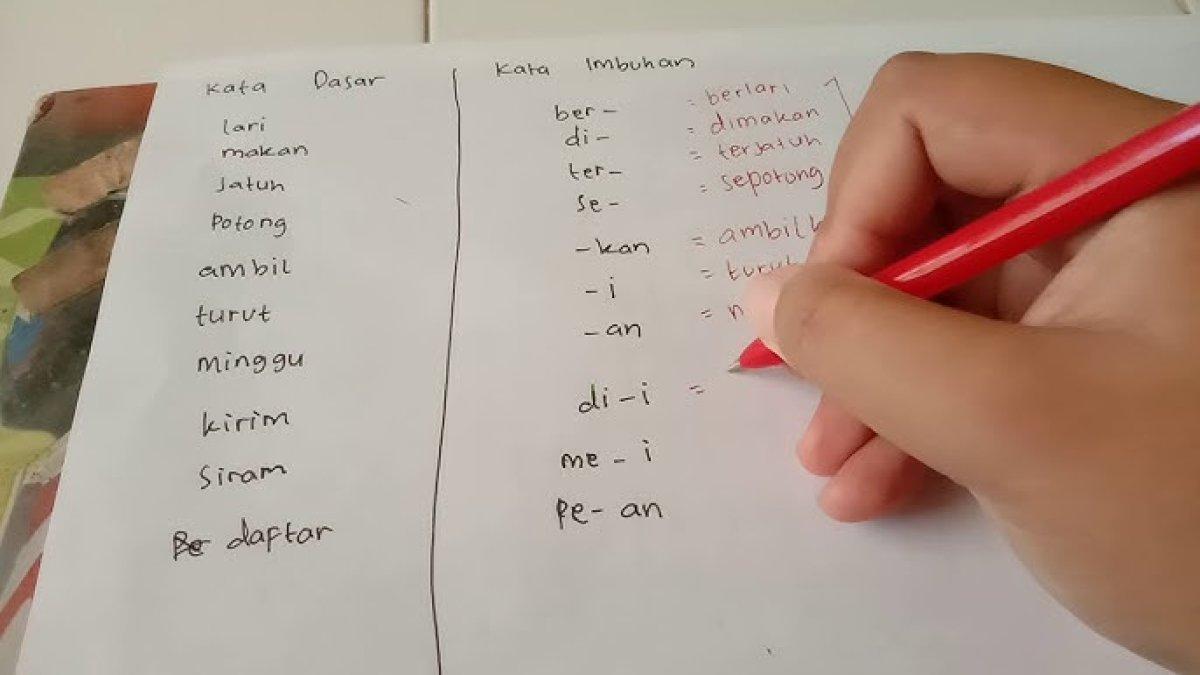 Kata Dasar Kata Imbuhan
lari ber- = berlari
makan di- = dimakan
Jatuh ter- = terjatuh
Potong se- = sepotong
ambil -kan = ambilk
turut -i = turut
minggu -an =
kirim di-i =
Siram me-i
daftar pe-an